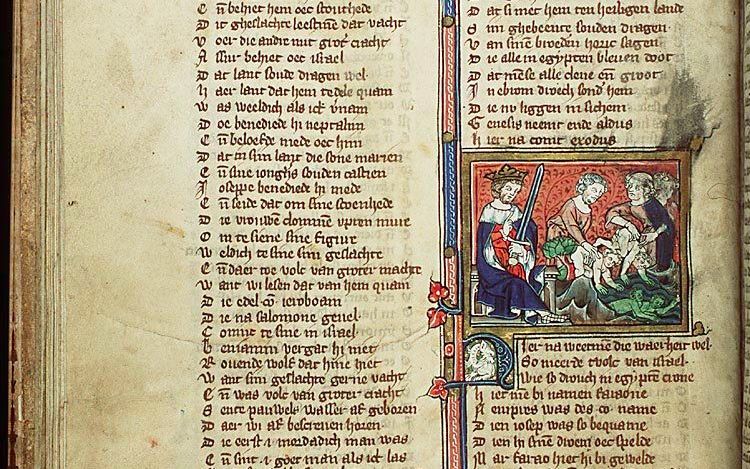 Eñ behiet hem oec stouthede
Dit gheslachte leestmē dat vacht
Voer die andre mit groter cracht
Assur behiet oec israel
Dat lant soude dragen wel
Maer lant dat hem te dele quam
Was weeldich als ict vernam
Doe benediede hi neptalim
Eñ beloefde mede oec him
Dat in sijn lant die sone
Eñ sine ionghe souden
Joseppe benediede hi mede
Eñ seide dat om sine scoenhede
Die vrouwen clommen upten mure
Om te siene sine figure
Weldich te sine sijn geslachte
Eñ daer toe volc van groter machte
Want wi lesen dat van hem quam
Die edel cō ieroboam
Die na salomone gevel
Conīc te sine in israel
Beniamin vergat hi niet
Rovende wolf dat hine hiet
Want sijn geslachte gerne vacht
Eñ was volc van groter cracht
Sente pauwels was er af geboren
Daer wi af bescreven horen
Die eerst i meidadich man was
Eñ sint i goet man als ict las
Dat si met hem ten heiligen lande
Sijn ghebeente souden dragen
Van sinē broeden horic sagen
Die alle in egypten bleven doot
Datmēse alle clene eñ groot
In ebron droech sond hem
Die nv liggen in sichem
Genesis neemt ende aldus
Hier na comt exodus
Hier na weetmē die waerheit wel
So meerde tvolc van israel
Wie so droech in egyptē crone
Hietmē bi namen faraone
Amipres was des cō name
Dien iosep was so bequame
Dien hi sinē droem oec spelde
Mar farao hiet hi bi gewelde